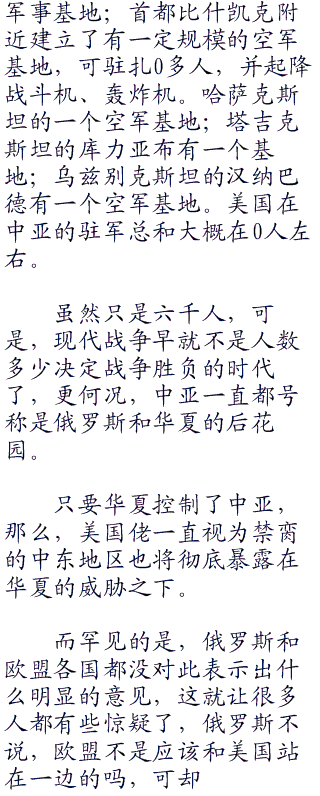 军事基地；首都比什凯克附
近建立了有一定规模的空军
基地，可驻扎0多人，并起降
战斗机、轰炸机。哈萨克斯
坦的一个空军基地；塔吉克
斯坦的库力亚布有一个基
地；乌兹别克斯坦的汉纳巴
德有一个空军基地。美国在
中亚的驻军总和大概在0人左
右。
虽然只是六千人，可
是，现代战争早就不是人数
多少决定战争胜负的时代
了，更何况，中亚一直都号
称是俄罗斯和华夏的后花
园。
只要华夏控制了中亚，
那么，美国佬一直视为禁脔
的中东地区也将彻底暴露在
华夏的威胁之下。
而罕见的是，俄罗斯和
欧盟各国都没对此表示出什
么明显的意见，这就让很多
人都有些惊疑了，俄罗斯不
说，欧盟不是应该和美国站
在一边的吗，可却